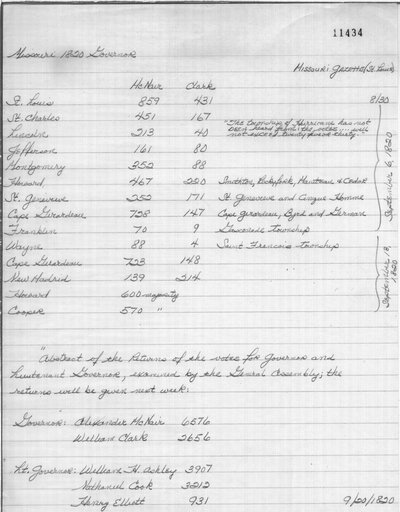 11434
Missouri 1820 Governor
Missouri Gazette (St. Louis)
McNair Clark
St. Louis 859 431 8/30
St. Charles 451 167 "The township of Hurricane has not
Lincoln 213 40 been heard from the votes ... will
not exceed twenty five or thirty."
Jefferson 161 80
Montgomery 352 88
Howard 467 220 Smithton, Rockyfork, Moniteau & Cedar
St. Genevieve 252 171 St Genevieve and Cinque Homme
Cape Girardeau 728 147 Cape Girardeau, Byrd and German
Franklin 70 9 Gasconade township
Wayne 88 4 Saint Francois township
September 6, 1820
Cape Girardeau 723 148
New Madrid 139 214
Howard 600 majority
Cooper 570 "
September 13, 1820
"Abstract of the Returns of the votes for Governor and
Lieutenant Governor, examined by the General Assembly; the
returns will be given next week:
Governor: Alexander McNair 6576
William Clark 2656
Lt. Governor: William H. Ashley 3907
Nathaniel Cook 3212
Henry Elliott 931 9/20/1820